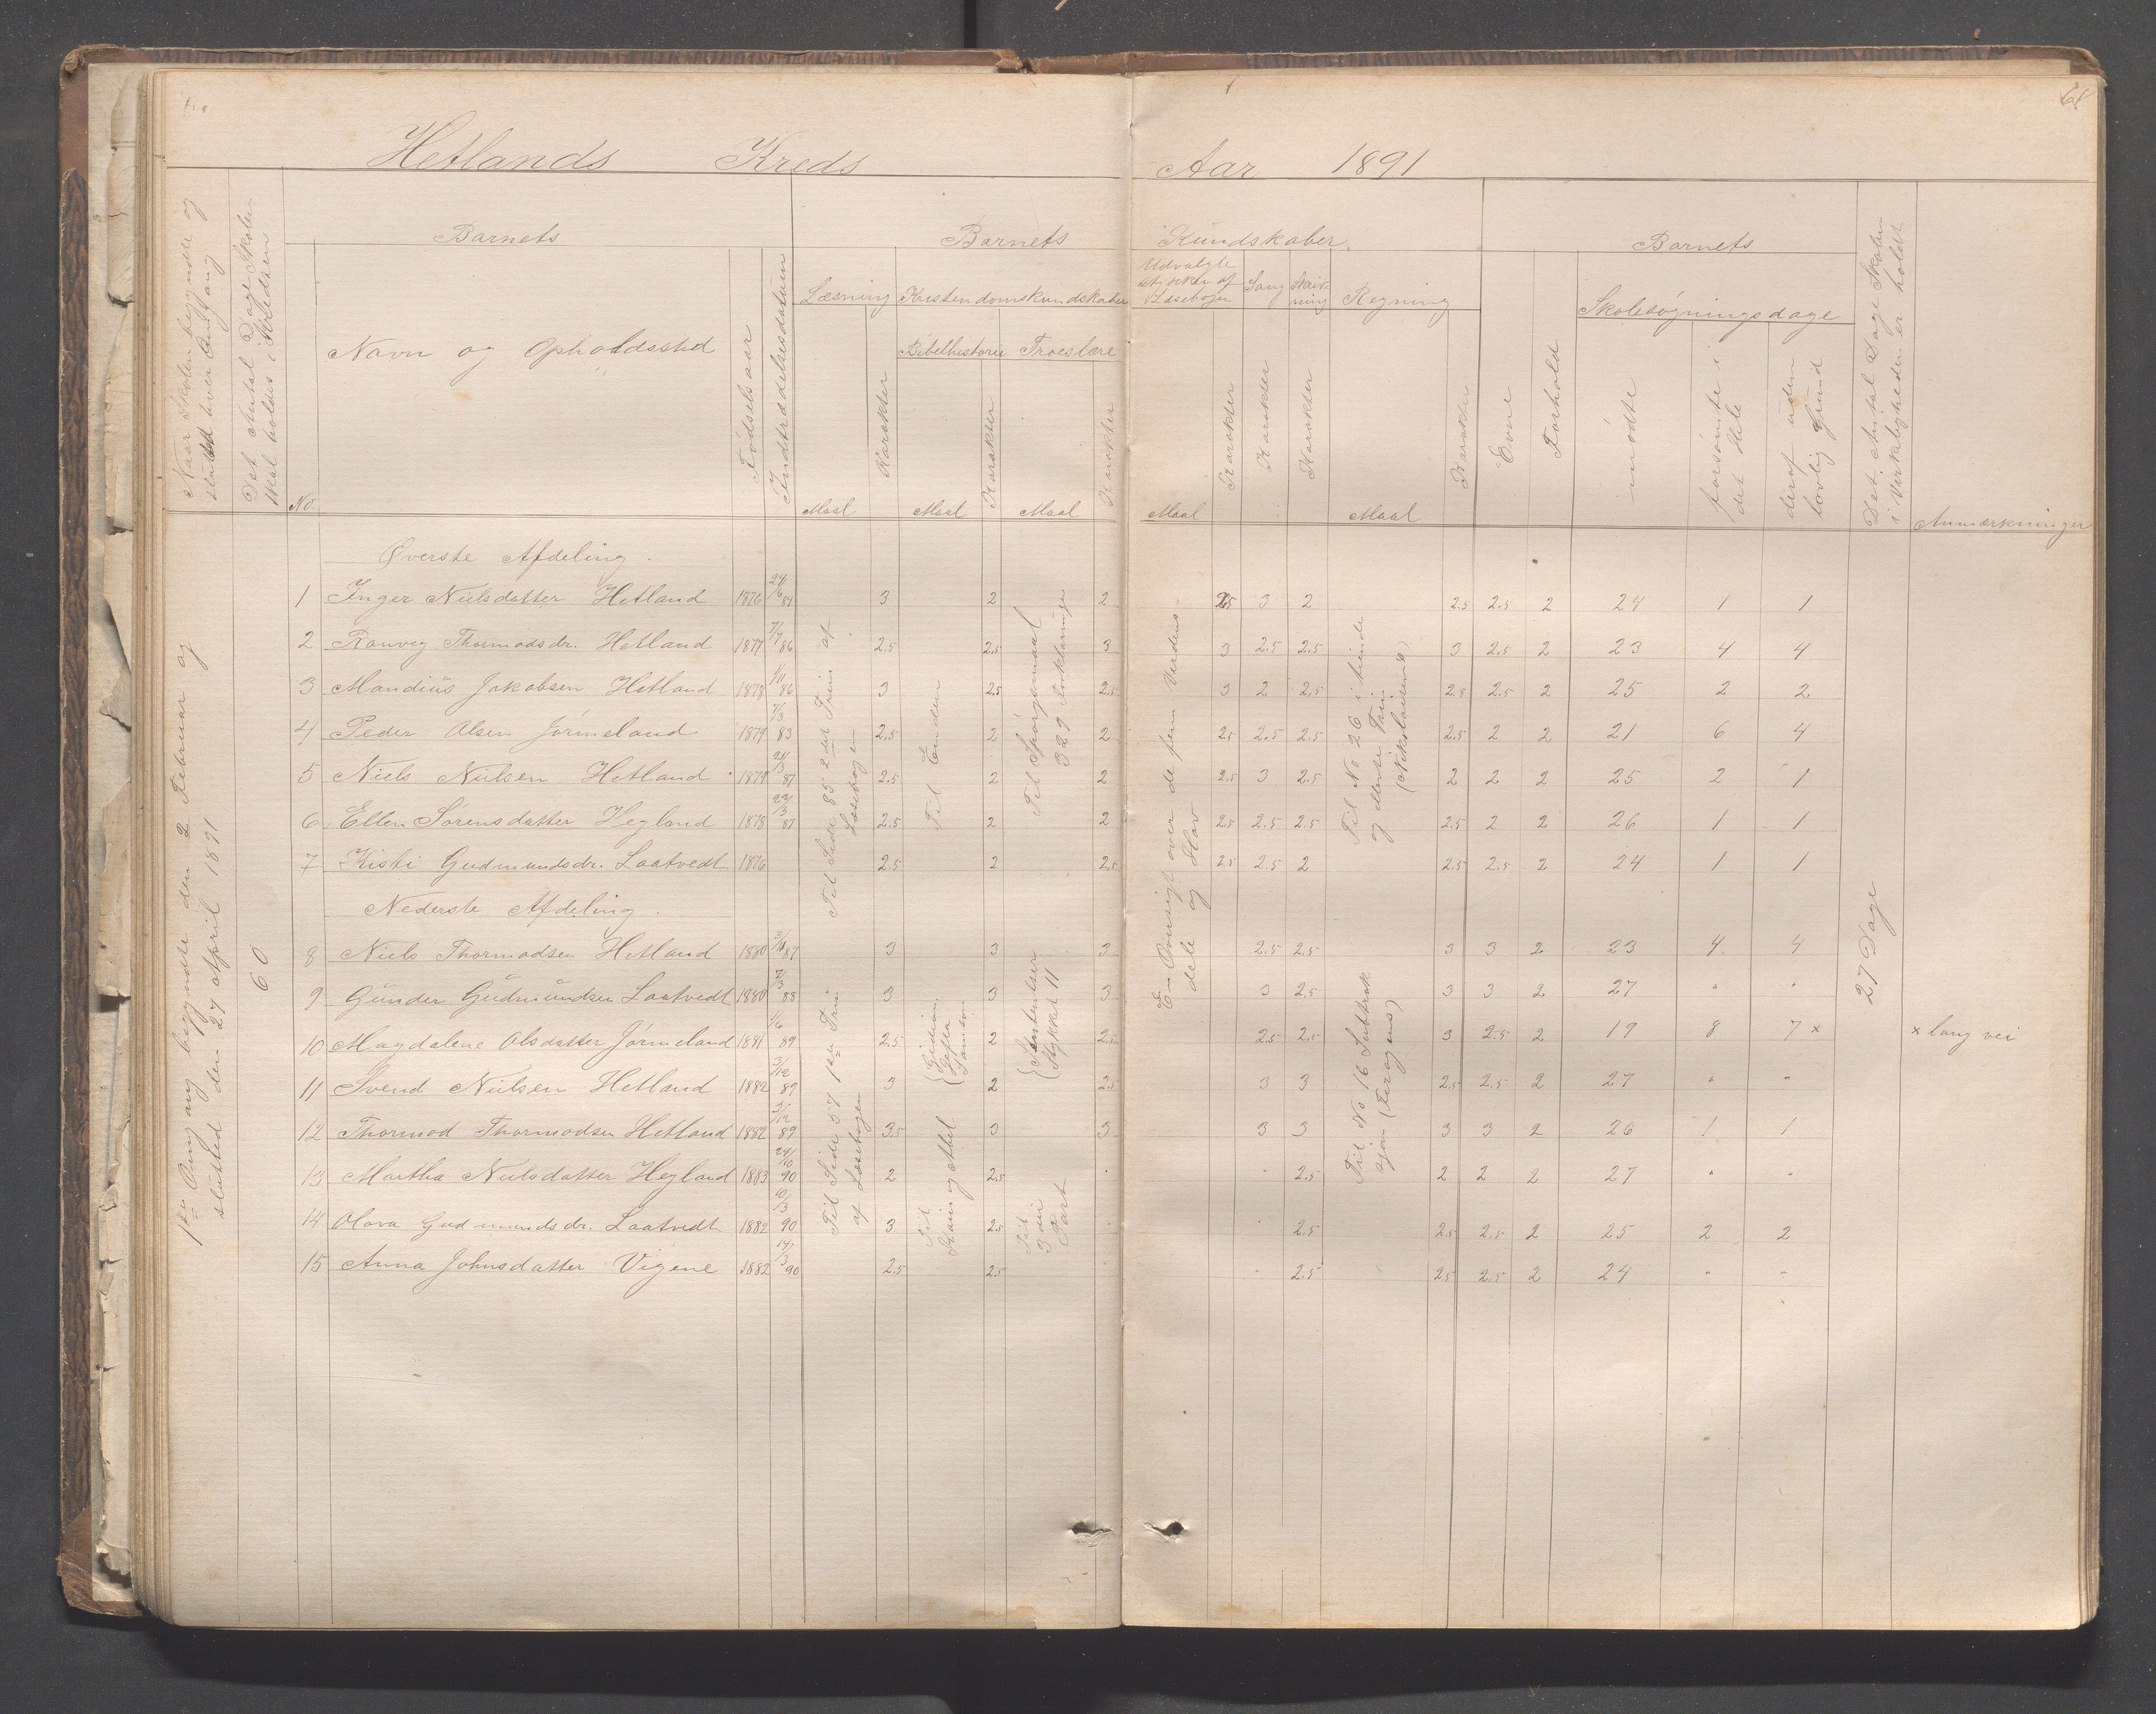 Hetlands Kreds
Aar 1891
64
Naar Skolen begyndte og sluttet hver Omgang
Det Antal Dage Skolen skal holdes i Kredsen
Barnets
Barnets
Kundskaber
Barnets
Det Antal Dage Skolen i Virkeligheden er holdt
Anmærkninger
No.
Navn og Opholdssted
Fødselsaar
Indtrædelsesdatum
Læsning
Kristendomskundskaber
Udvalgte Stykker af Læsebogen
Sang
Skrivning
Regning
Evne
Forhold
Skolesøgningsdage
Bibelhistorie
Troeslære
Maal
Karakter
Maal
Karakter
Maal
Karakter
Maal
Karakter
Karakter
Karakter
Maal
Karakter
mødte
forsømte i det Hele
deraf uden lovlig Grund
1ste Omgang begyndte den 2 Februar og slutted den 27 April 1891
60
Øverste Afdeling.
1 Inger Nielsdatter Hetland 1876 24/6 84 3 2 2 2.5 3 2 2.5 2.5 2 24 1 1
2 Ranveg Thormodsdr. Hetland 1877 7/7 86 2.5 2.5 3 3 2.5 2.5 3 2.5 2 23 4 4
3 Mandius Jakobsen Hetland 1878 1/11 86 3 2.5 2.5 3 2 2.5 2.8 2.5 2 25 2 2
4 Peder Olsen Jørmeland 1879 7/3 83 2.5 2 2 2.5 2.5 2.5 2.5 2 2 21 6 4
5 Niels Nielsen Hetland 1879 24/3 87 2.5 2 2 2.5 3 2.5 2 2 2 25 2 1
6 Ellen Sørensdatter Hegland 1878 22/3 87 2.5 2 2 2.5 2.5 2.5 2.5 2 2 26 1 1
7 Kisti Gudmundsdr. Laatvedt 1876 2.5 2 2.5 2.5 2.5 2 2.5 2.5 2 24 1 1
Til Side 85 2det Trin af Læsebogen
Til Enden
Til Spørgsmaal 329 Forklaringer
En Oversigt over de fem Verdensdele og Hav
Til No 26 i tiende og Mente Trin (Nikolaisens)
Nederste Afdeling.
8 Niels Thormodsen Hetland 1880 3/11 87 3 3 3 2.5 2.5 3 3 2 23 4 4
9 Gunder Gudmundsen Laatvedt 1880 7/3 88 3 3 3 3 2.5 3 3 2 27 " "
10 Magdalene Olsdatter Jørmeland 1881 1/6 89 2.5 2 2.5 2.5 2.5 3 2.5 2 19 8 7 × × lang vei
11 Svend Nielsen Hetland 1882 3/12 89 3 2 2.5 3 3 2.5 2.5 2 27 " "
12 Thormod Thormodsen Hetland 1882 3/12 89 3.5 3 3 3 3 3 3 2 26 1 1
13 Martha Nielsdatter Hegland 1883 24/10 90 2 2.5 " " 2.5 2 2 2 27 " "
14 Olava Gudmundsdr. Laatvedt 1882 10/3 90 3 2.5 2.5 2.5 2.5 2 25 2 2
15 Anna Johnsdatter Vigene 1882 14/3 90 2.5 2.5 2.5 2.5 2.5 2 24 " "
Til Side 57 1ste Trin af Læsebogen
(Gideon, Jefta Samson
Til Kain og Abel
(Sakramentenser Stykket 11
Til 3die Part
Til No 16 Subtraksjon (Jørgens)
27 Dage